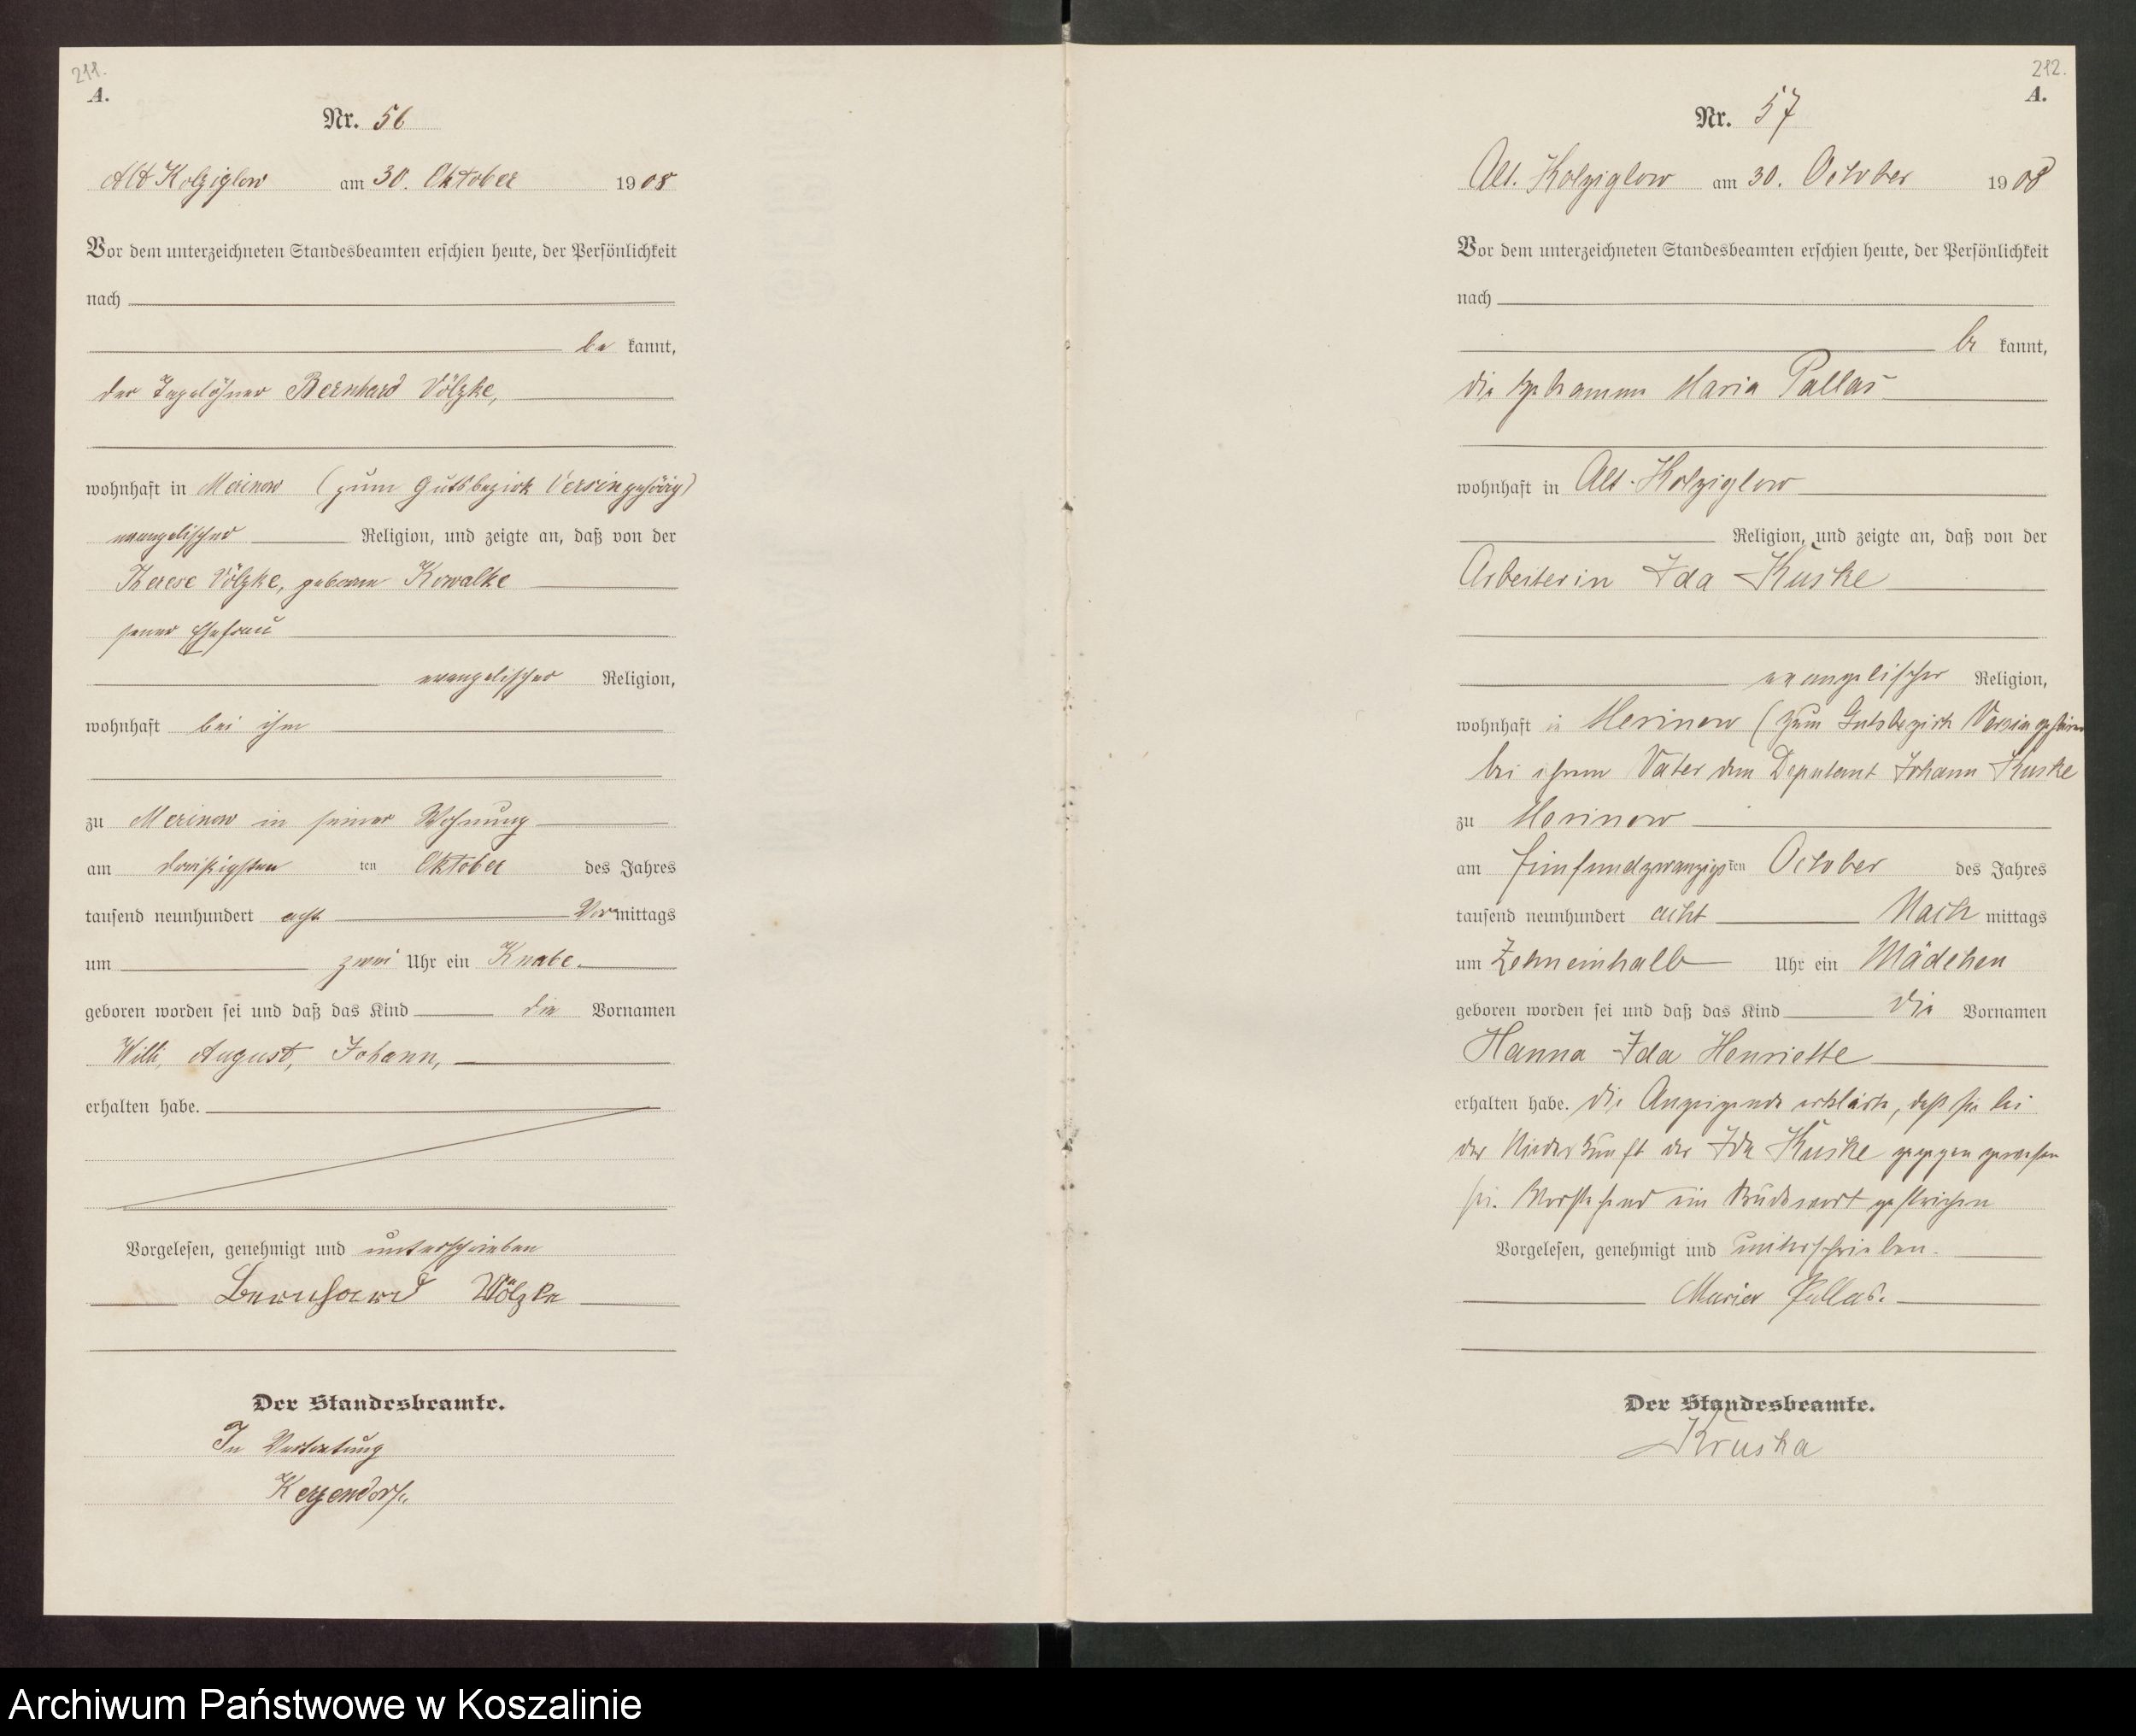 211.
A.
Nr. 56
Alt Kolziglow am 30. Oktober 1908
Vor dem unterzeichneten Standesbeamten erschien heute, der Persönlichkeit
nach
be kannt,
der Tagelöhner Bernhard Völzke,
wohnhaft in Merinow (zum Gutsbezirk Versin gehörig)
evangelischer Religion, und zeigte an, daß von der
Therese Völzke, geborene Kowalke
seiner Ehefrau
evangelischer Religion,
wohnhaft bei ihm
zu Merinow in seiner Wohnung
am dreißigsten ten Oktober des Jahres
tausend neunhundert acht Vormittags
um zwei Uhr ein Knabe
geboren worden sei und daß das Kind die Vornamen
Willi, August, Johann,
erhalten habe.
Vorgelesen, genehmigt und unterschrieben
Bernhard Völzke
Der Standesbeamte.
In Vertretung
212.
A.
Nr. 57
Alt. Kolziglow am 30. October 1908
Vor dem unterzeichneten Standesbeamten erschien heute, der Persönlichkeit
nach
be kannt,
die Hebamme Maria Pallas
wohnhaft in Alt. Kolziglow
Religion, und zeigte an, daß von der
Arbeiterin Ida Kuske
evangelischer Religion,
wohnhaft in Merinow (zum Gutsbezirk Versin
bei ihrem Vater dem Deputant Johann Kuske
zu Merinow
am fünfundzwanzigsten October des Jahres
tausend neunhundert acht Nach mittags
um Zehneinhalb Uhr ein Mädchen
geboren worden sei und daß das Kind die Vornamen
Hanna Ida Henriette
erhalten habe. Die Anzeigende erklärte, daß sie bei
der Niederkunft der Ida Kuske zugegen gewesen
sei. Vorstehend ein Druckwort gestrichen
Vorgelesen, genehmigt und unterschrieben.
Marie Pallas.
Der Standesbeamte.
Kruska
Archiwum Państwowe w Koszalinie